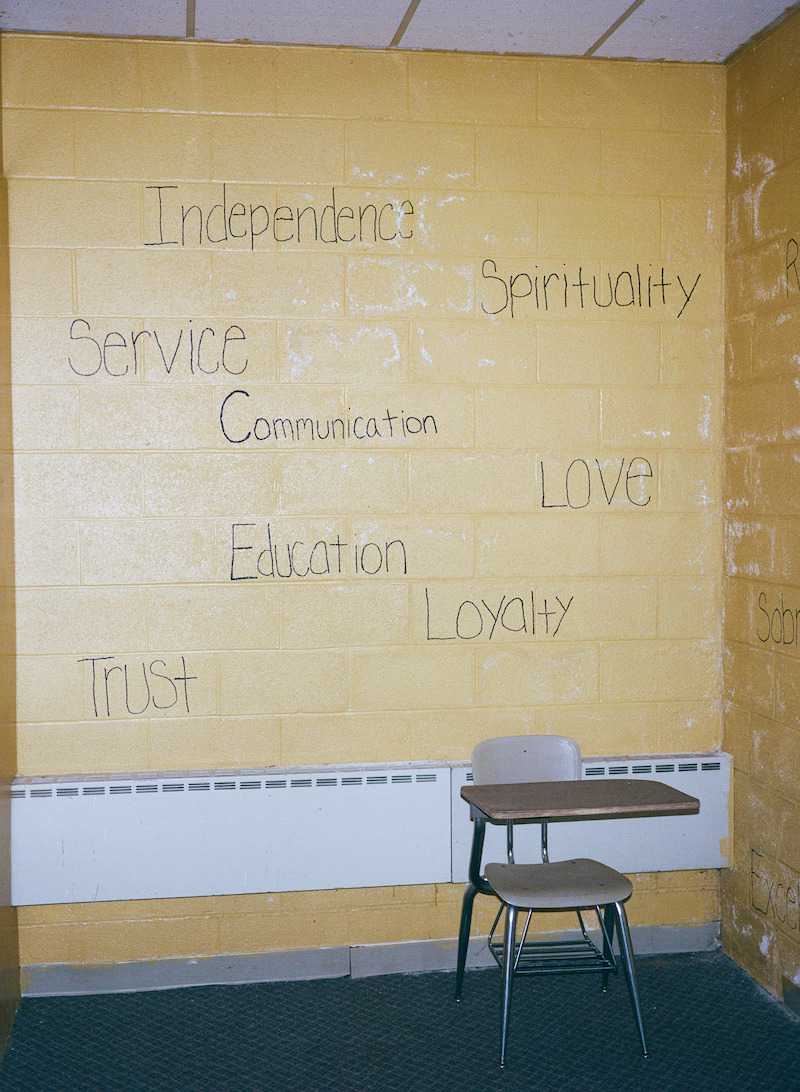 Independence
Spirituality
Service
Communication
Love
Education
Loyalty
Trust